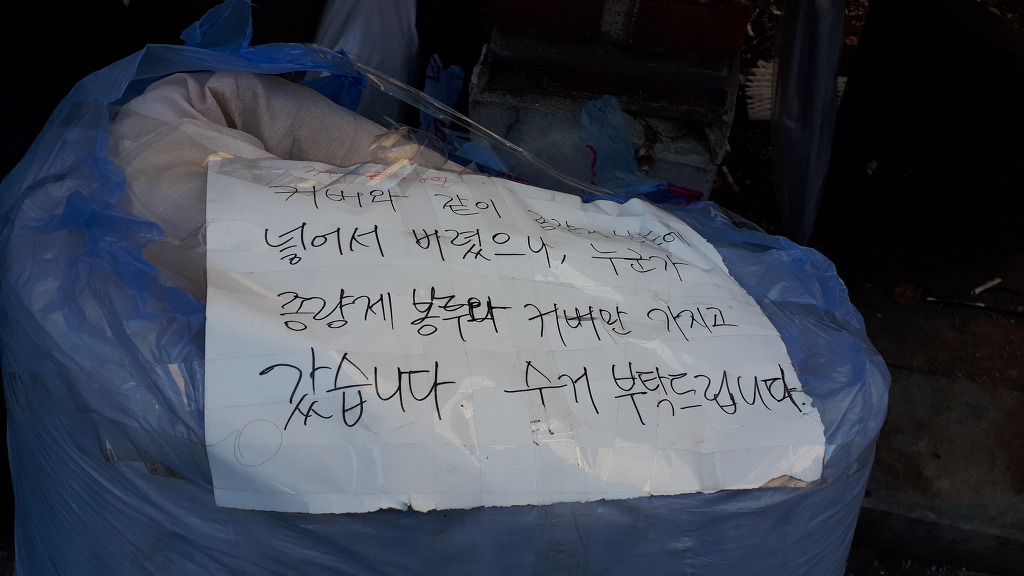 커버와 같이
넣어서 버렸으나, 누군가
종량제 봉투와 커버만 가지고
갔습니다. 수거 부탁드립니다.